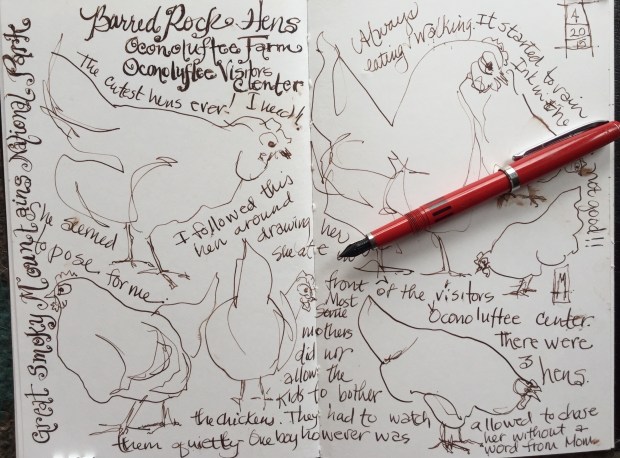 Great Smoky Mountains National Park
Barred Rock Hens
Oconoluftee Farm
Oconoluftee Visitors
Center
The cutest hens ever!
Always
eating walking.
It started to rain
not good!!
4
20
She seemed
to pose for me.
I followed this
hen around
drawing her
She ate
front of the visitors
Oconoluftee center.
There were
3
hens.
Most
some
mothers
did not
allow the
kids to bother
the chickens. They had to watch
them quietly. One boy however was
allowed to chase
her without a
word from Mom.